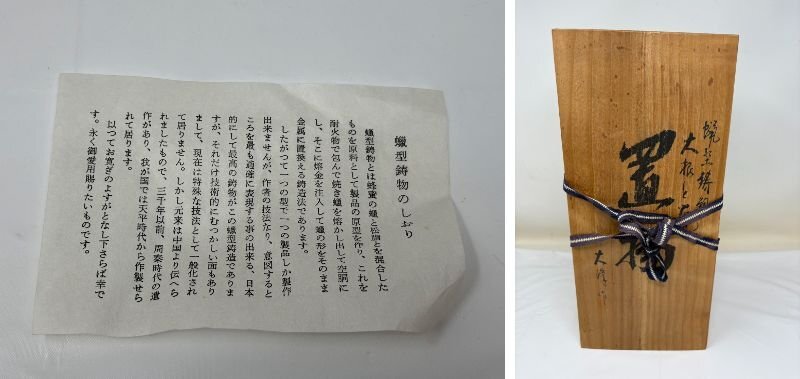 蠟型鋳物のしおり
蠟型鋳物とは蜂蜜の蠟と松脂とを混合した
ものを原料として製品の原型を作り、これを
耐火物で包んで焼き蠟を熔かし出して空洞に
し、そこに熔金を注入して蠟の形をそのまま
金属に置換える鋳造法であります。
したがつて一つの型で一つの製品しか製作
出来ませんが、作者の技法なり、意図すると
ころを最も適確に表現する事の出来る、日本
的にして最高の鋳物がこの蠟型鋳造でありま
すが、それだけ技術的にむつかしい面もあり
まして、現在は特殊な技法として一般化され
て居りません。しかし元来は中国より伝へら
れましたもので、三千年以前、周秦時代の遺
作があり、我が国では天平時代から作製せら
れて居ります。
以つてお寛ぎのよすがとなし下さらば幸で
す。永く御愛用賜りたいものです。
大根と
置物